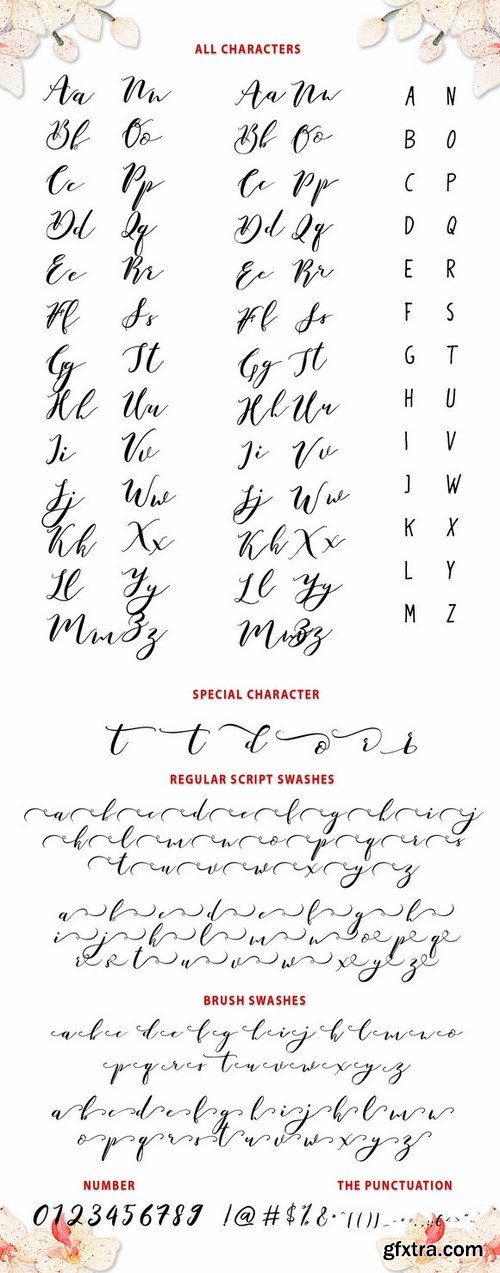 ALL CHARACTERS
Aa Nn Aa Nn A N
Bb Oo Bb Oo B O
Cc Pp Cc Pp C P
Dd Qq Dd Qq D Q
Ee Rr Ee Rr E R
Ff Ss Ff Ss F S
Gg Tt Gg Tt G T
Hh Uu Hh Uu H U
Ii Vv Ii Vv I V
Jj Ww Jj Ww J W
Kk Xx Kk Xx K X
Ll Yy Ll Yy L Y
Mm Zz Mm Zz M Z
SPECIAL CHARACTER
t t d o r s
REGULAR SCRIPT SWASHES
a b c d e f g h i j
k l m n o p q r s
t u v w x y z
a b c d e f g h
i j k l m n o p q
r s t u v w x y z
BRUSH SWASHES
a b c d e f g h i j k l m n o
p q r s t u v w x y z
a b c d e f g h i j k l m n
o p q r s t u v w x y z
NUMBER THE PUNCTUATION
0123456789 !@#$%&*(())
gfxtra.com